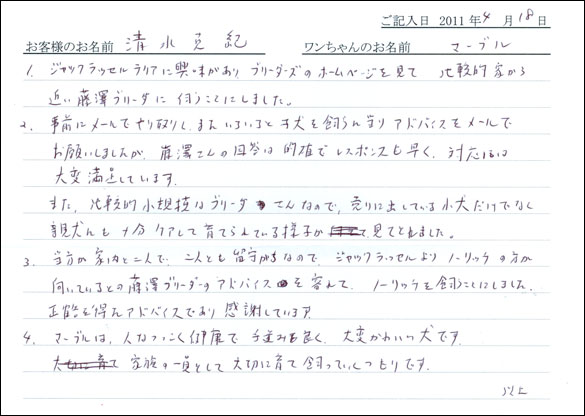 ご記入日 2011年4月18日
お客様のお名前 清水克紀 ワンちゃんのお名前 マーブル
1. ジャックラッセルテリアに興味があり ブリーダーズのホームページを見て 比較的家から
近い藤澤ブリーダに伺うことにしました。
2. 事前にメールでやり取りし、また いろいろと子犬を飼う上でのアドバイスをメールで
お願いしましたが、藤澤さんの回答は的確でレスポンスも早く、対応には
大変満足しています。
また、比較的小規模なブリーダさんなので、売りに出している小犬だけでなく
親犬も十分ケアして育てられている様子が 見てとれました。
3. 当方が家内と二人で、二人とも留守がちなので、ジャックラッセルより ノーリッチの方が
向いているとの藤澤ブリーダーのアドバイスを容れて、ノーリッチを飼うことにしました。
正鵠を得たアドバイスであり 感謝しています。
4. マーブルは、人なつこく健康で 毛並みも良く、大変かわいい犬です。
家族の一員として大切に育て飼っていくつもりです。
以上